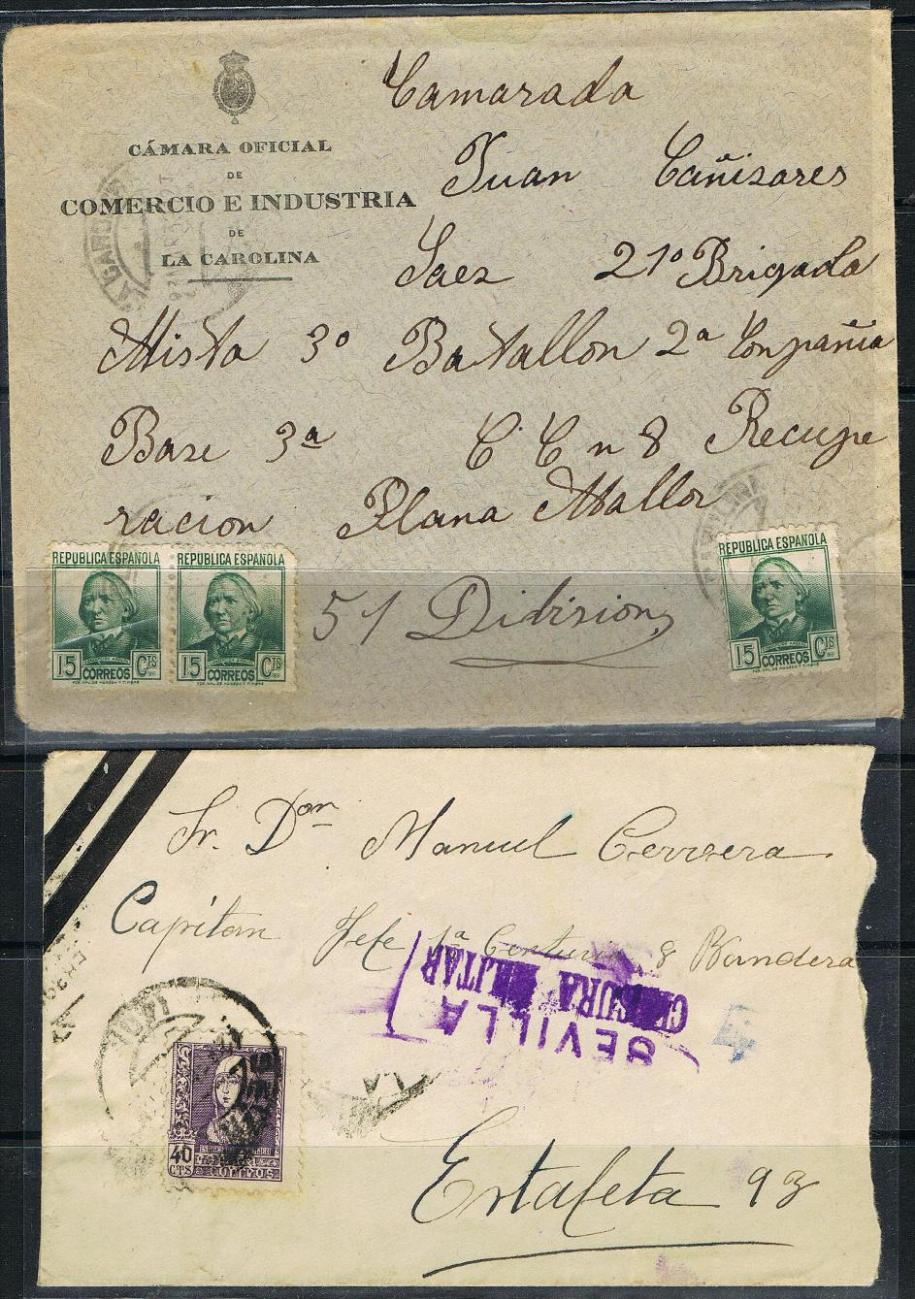 Camarada
CÁMARA OFICIAL
DE
COMERCIO E INDUSTRIA
DE
LA CAROLINA
Juan Cañisares
Saez 21º Brigada
Mista 3º Batallon 2ª Conpañia
Base 3ª C C n 8 Recupe
racion Plana Mallor
51 Dibision
REPUBLICA ESPAÑOLA
15 CORREOS Cts
REPUBLICA ESPAÑOLA
15 CORREOS Cts
REPUBLICA ESPAÑOLA
15 CORREOS Cts
Sr. Don Manuel Cerrera
Capitan Jefe 1ª Centuria 8 Bandera
SEVILLA
CENSURA MILITAR
40
CTS
CORREOS
Estafeta 93